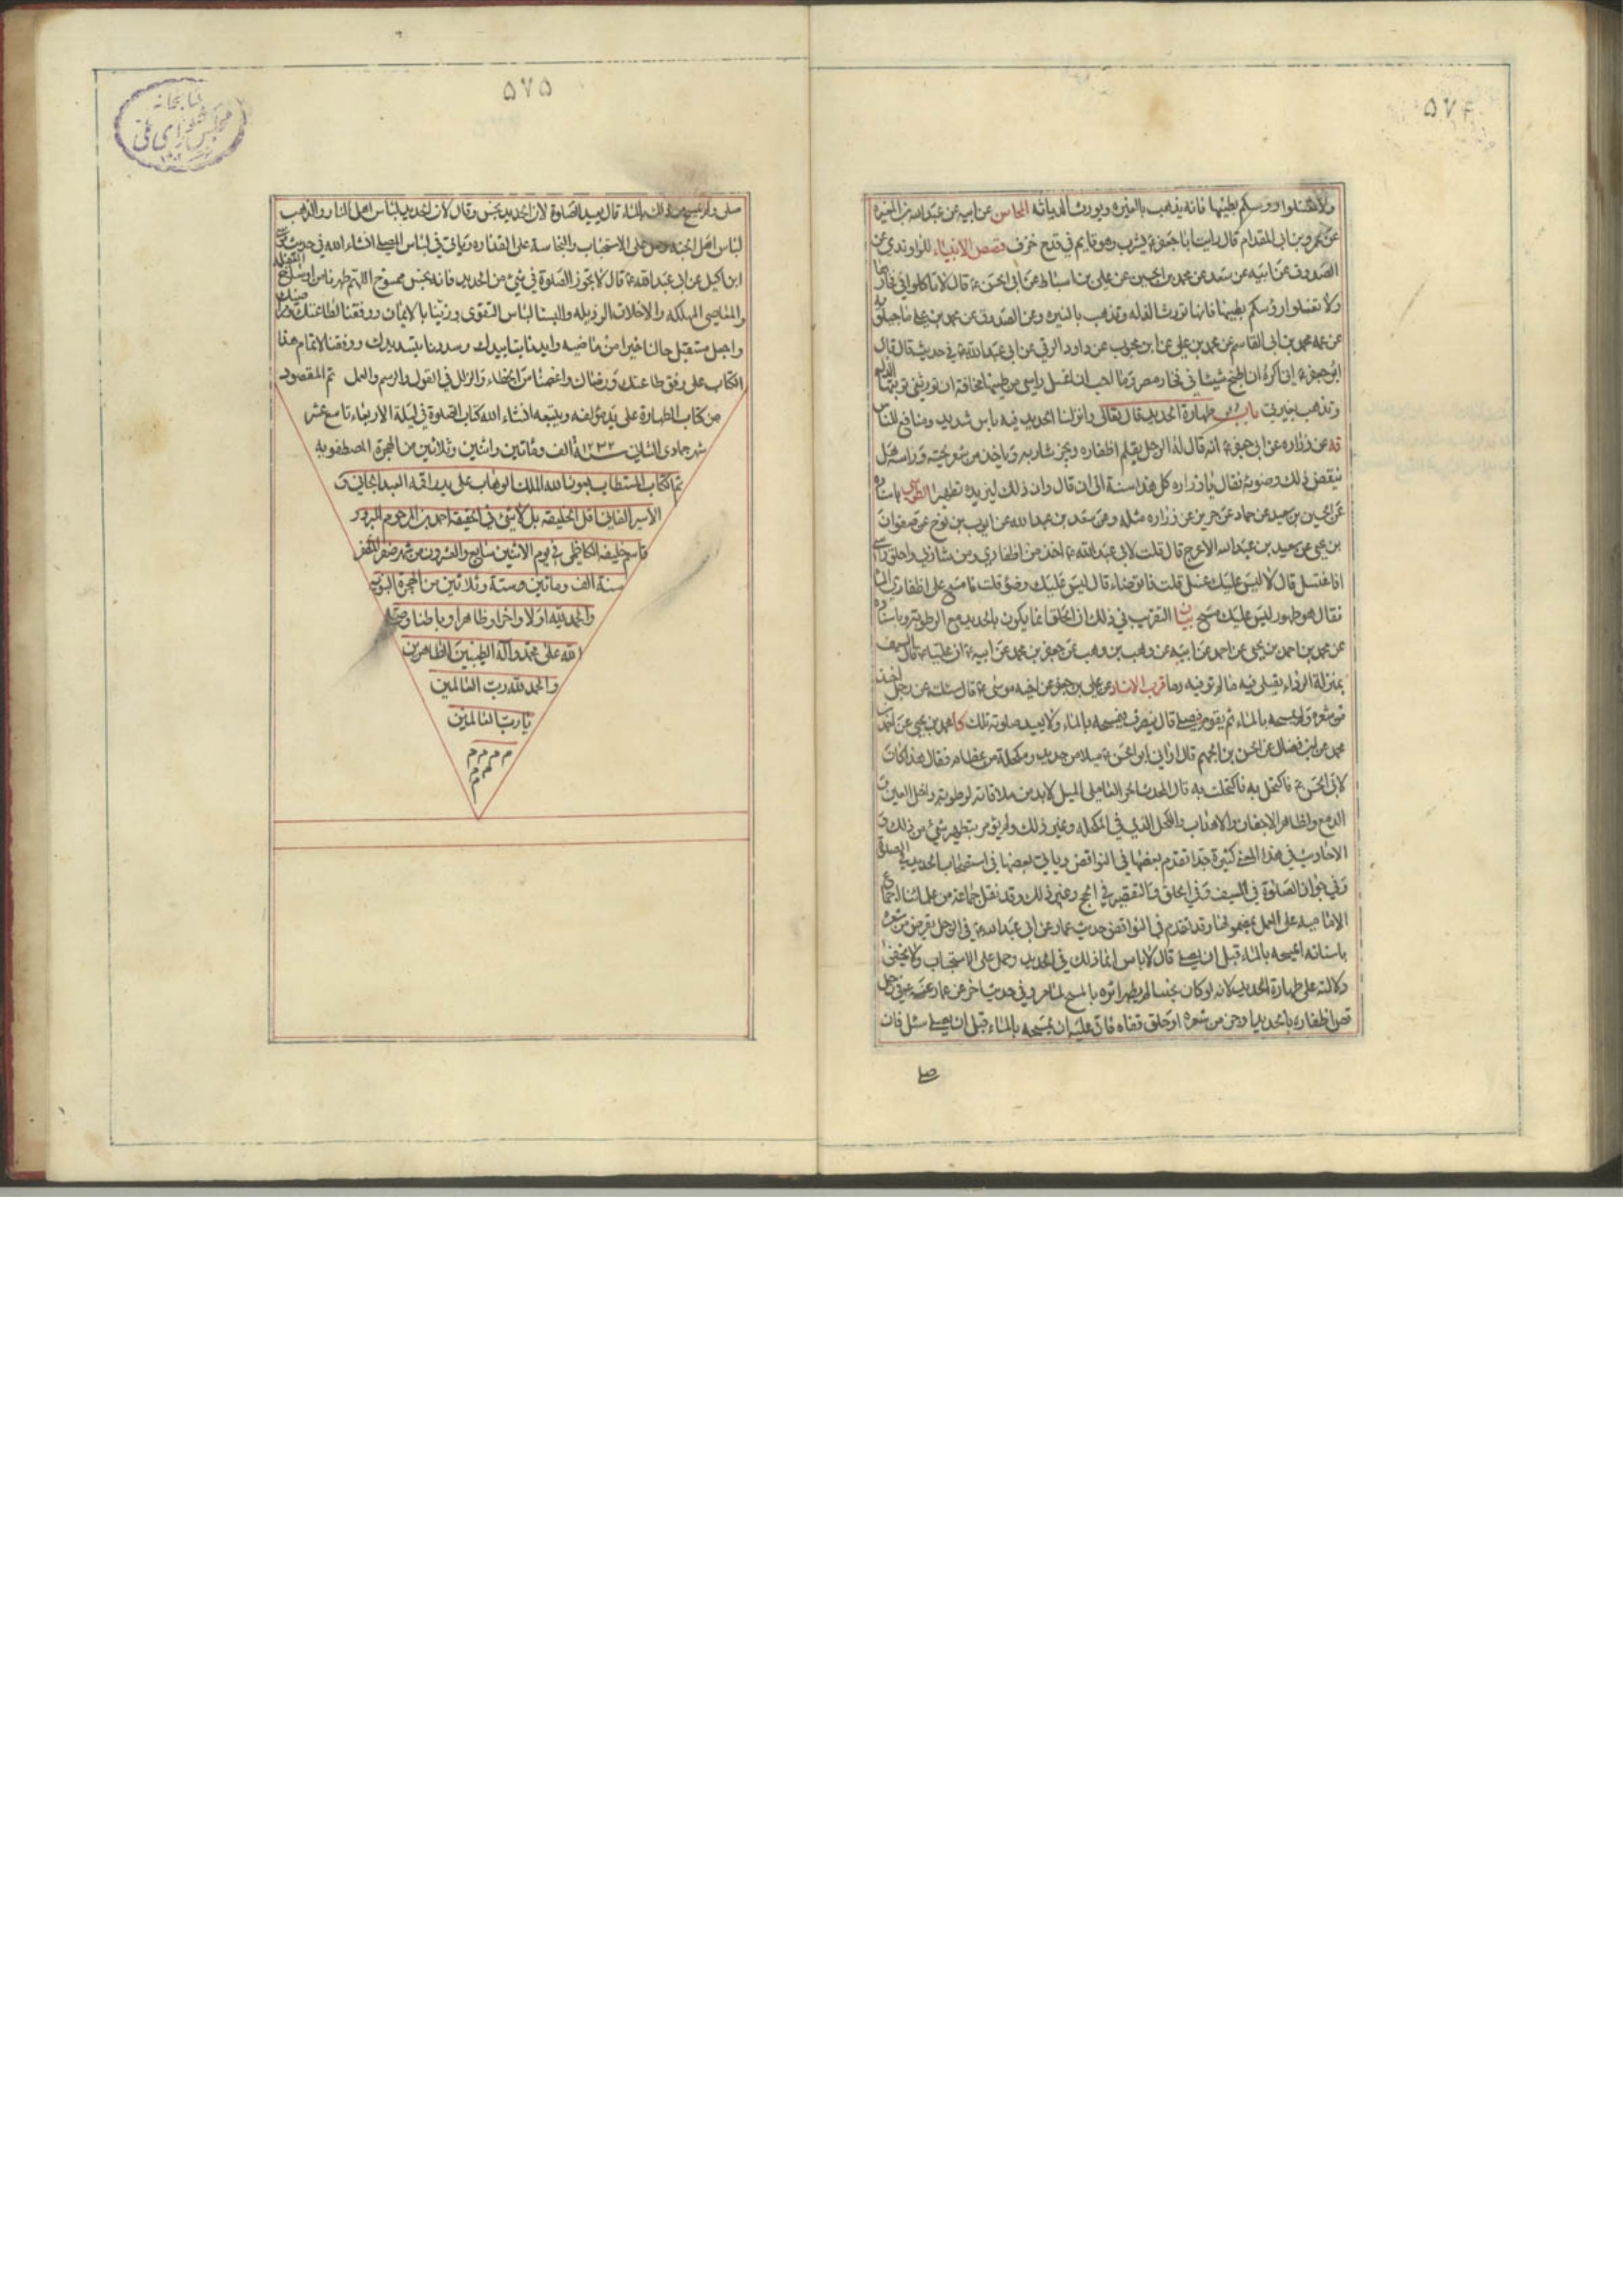 ٥٧٤
ولا تغسلوا رؤسكم بطينها فانه يذهب بالغيره ويورث الدياثه المحاسن عن ابيه عن عبد الله بن المغيره
عن عمرو بن ابى المقدام قال رايت ابا جعفر ع يشرب وهو قايم في قدح خزف قصص الانبياء للراوندي عن
الصدوق عن ابيه عن سعد عن محمد بن الحسين عن علي بن اسباط عن ابى الحسن ع قال لا تاكلوا في فخارها
ولا تغسلوا رؤسكم بطينها فانها تورث الذله وتذهب بالغيره وعن الصدوق عن محمد بن علي ماجيلويه
عن عمه محمد بن ابى القاسم عن محمد بن علي عن ابن محبوب عن داود الرقي عن ابى عبد الله ع في حديث قال قال
ابو جعفر ع انى اكره ان اطبخ شيئا في فخار مصر وما احب ان اغسل راسى من طينها مخافة ان تورثنى تربتها الذل
وتذهب بغيرتى باب طهارة الحديد قال تعالى وانزلنا الحديد فيه باس شديد ومنافع للناس
عن زراره عن ابى جعفر ع انه قال له الرجل يقلم اظفاره ويجز شاربه وياخذ من شعر لحيته وراسه هل
ينقض ذلك وضوئه فقال يا زراره كل هذا سنة الى ان قال وان ذلك ليزيده تطهيرا الطوسى باسناده
عن الحسين بن سعيد عن حماد عن حريز عن زراره مثله وعن سعد بن عبد الله عن ايوب بن نوح عن صفوان
بن يحيى عن سعيد بن عبد الله الاعرج قال قلت لابى عبد الله ع اخذ من اظفاري ومن شاربي واحلق راسي
افاغتسل قال لا ليس عليك غسل قلت فاتوضاء قال ليس عليك وضوء قلت فامسح على اظفاري الماء
فقال هو طهور ليس عليك مسح بيان التقريب في ذلك ان الحلق انما يكون بالحديد مع الرطوبة وباسناده
عن محمد بن احمد بن يحيى عن احمد عن ابيه عن وهب بن وهب عن جعفر بن محمد عن ابيه ع ان عليا ع قال السيف
بمنزلة الرداء يصلى فيه ما لم تر فيه دما قرب الاسناد عن علي بن جعفر عن اخيه موسى ع قال سئلته عن رجل اخذ
من شعره ولم يمسحه بالماء ثم يقوم فيصلي قال ينصرف فيمسحه بالماء ولا يعيد صلوته تلك كا محمد بن يحيى عن احمد بن
محمد عن ابن فضال عن الحسن بن الجهم قال ارانى ابو الحسن ع ميلا من حديد ومكحلة من عظام فقال هذا كان
لابى الحسن ع فاكتحل به فاكتحلت به قال المحدث الحر العاملى الميل لابد من ملاقاته لرطوبة داخل العين
الدمع ولظاهر الاجفان والاهداب والكحل الذي في المكحله وغير ذلك ولم يؤمر بتطهير شئ من ذلك و
الاحاديث في هذا المعنى كثيرة جدا تقدم بعضها في النواقض وياتى بعضها في استصحاب الحديد في الصلوة
وفي جواز الصلوة في السيف وفي الحلق والتقصير في الحج وغير ذلك وقد نقل جماعة من علمائنا اجماع
الاماميه على العمل بمضمونها وقد تقدم في النواقض حديث عمار عن ابى عبد الله ع في الرجل يقرض من شعره
باسنانه ايمسحه بالماء قبل ان يصلي قال لا باس انما ذلك في الحديد وحمل على الاستحباب ولا يخفى
دلالته على طهارة الحديد لانه لو كان نجسا لم يطهر اثره بالمسح لما مر وفي حديث اخر عن عمار عنه ع في رجل
قص اظفاره بالحديد او جز من شعره او حلق قفاه فان عليه ان يمسحه بالماء قبل ان يصلي سئل فان
صلى
٥٧٥
صلى ولم يمسح من ذلك بالماء قال يعيد الصلوة لان الحديد نجس وقال لان الحديد لباس اهل النار والذهب
لباس اهل الجنه وحمل على الاستحباب والنجاسة على القذاره وياتى في لباس المصلي انشاء الله في حديث موسى
ابن اكيل عن ابى عبد الله ع قال لا تجوز الصلوة في شئ من الحديد فانه نجس ممسوخ اللهم طهرنا من اوساخ
والمعاصي المهلكه والاخلاق الرذيله والبسنا لباس التقوى وزينا بالايمان ووفقنا لطاعتك
واجعل مستقبل حالنا خيرا من ماضيه وايدنا بتاييدك وسددنا بتسديدك ووفقنا لاتمام هذا
الكتاب على وفق طاعتك ورضاك واعصمنا من الخطاء والزلل في القول والرسم والعمل تم المقصود
من كتاب الطهارة على يد مؤلفه ويتبعه انشاء الله كتاب الصلوة في ليلة الاربعاء تاسع عشر
شهر جمادى الثانى سنة ١٢٣٢ الف ومأتين واثنين وثلاثين من الهجرة المصطفويه
تم الكتاب المستطاب بعون الله الملك الوهاب على يد اقه العبد الجاني و
الاسير الفانى اقل الخليقه بل لا شئ في الحقيقه احمد بن المرحوم المبرور
قاسم خليفه الكاظمى في يوم الاثنين سابع والعشرون من شهر صفر المظفر
سنة الف ومأتين وستة وثلاثين من الهجرة النبويه
والحمد لله اولا واخرا وظاهرا وباطنا وصلى
الله على محمد وآله الطيبين الطاهرين
والحمد لله رب العالمين
يا رب العالمين
م م م م م
م م
م
كتابخانه
مجلس شوراى ملى